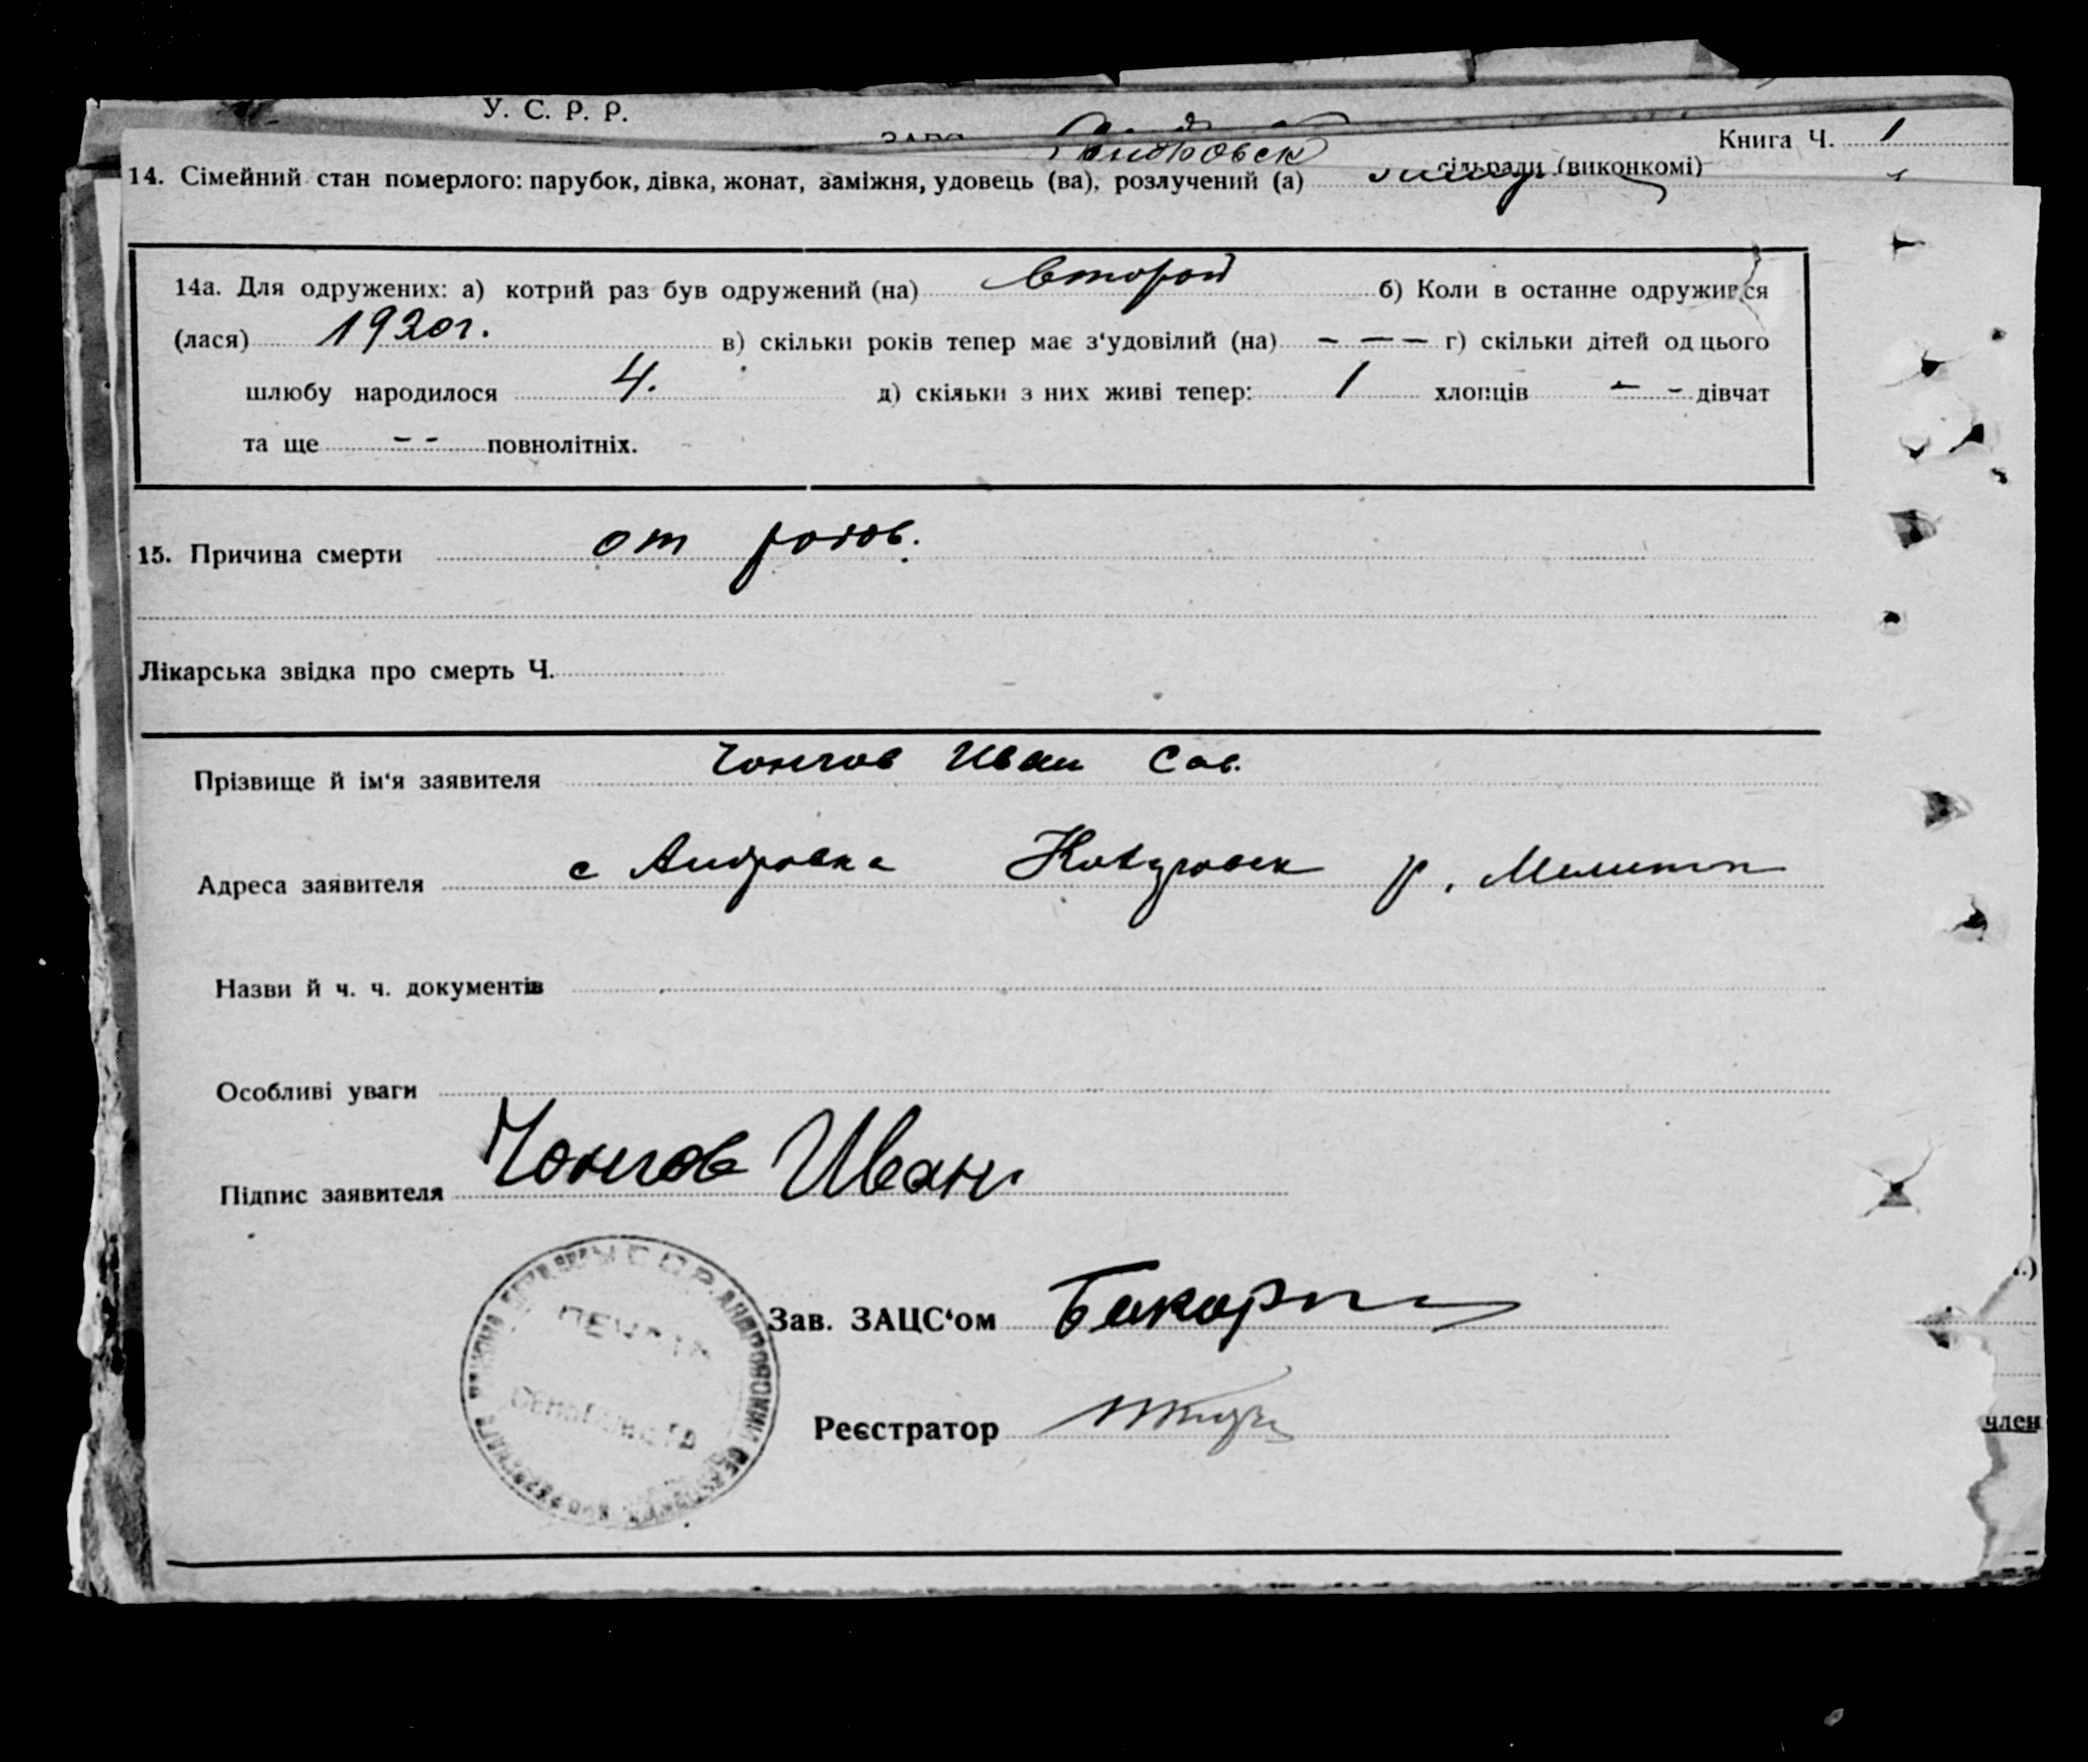 У. С. Р. Р.
Книга Ч. 1
сільради (виконкомі)
14. Сімейний стан померлого: парубок, дівка, жонат, заміжня, удовець (ва), розлучений (а)
14а. Для одружених: а) котрий раз був одружений (на) второй б) Коли в останнє одружився
(лася) 1920г. в) скільки років тепер має з‘удовілий (на) - - - г) скільки дітей од цього
шлюбу народилося 4. д) скільки з них живі тепер: 1 хлопців - - дівчат
та ще - - повнолітніх.
15. Причина смерти от родов.
Лікарська звідка про смерть Ч.
Прізвище й ім‘я заявителя Чонгов Иван Сав.
Адреса заявителя с Андровка р. Мелитоп
Назви й ч. ч. документів
Особливі уваги
Підпис заявителя Чонгов Иван
Зав. ЗАЦС‘ом
Реєстратор
член